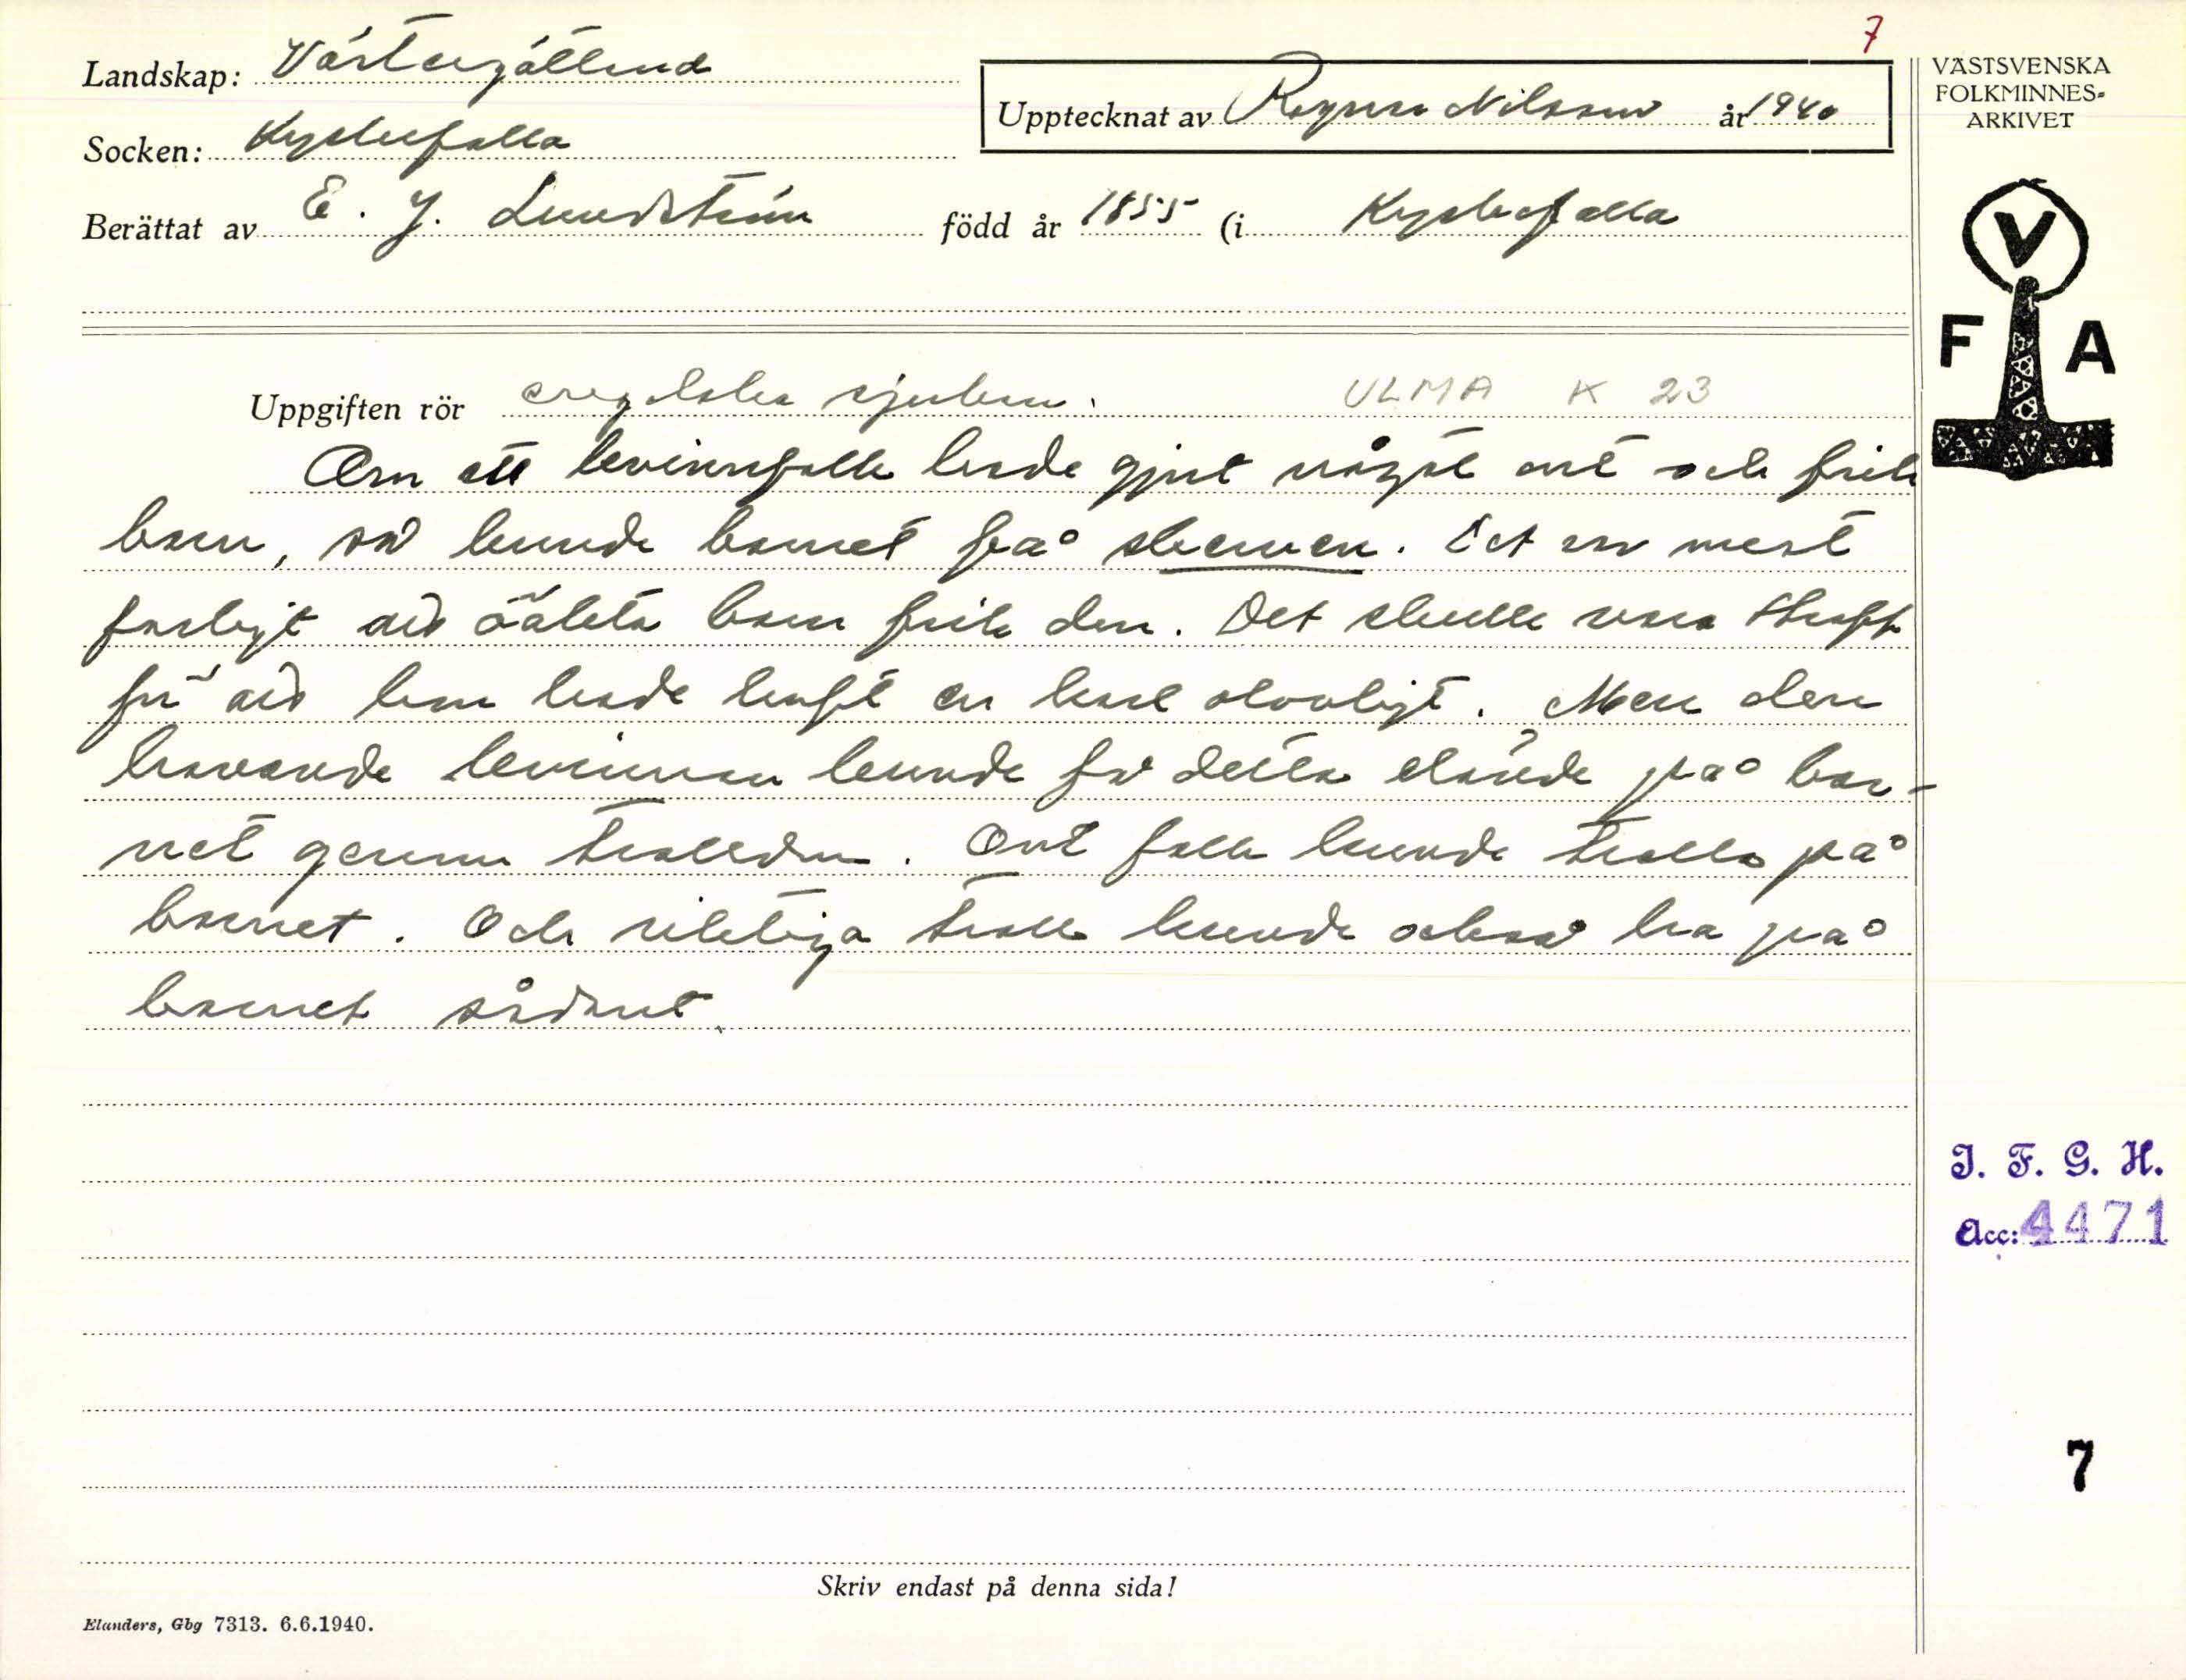 7
Landskap: Västergötland
Upptecknat av Ragnar Nilsson år 1940
VÄSTSVENSKA
FOLKMINNES-
ARKIVET
Socken: Kyrkefalla
Berättat av E. J. Lundström född år 1855 (i Kyrkefalla
V
F A
Uppgiften rör engelska sjukan. ULMA K 23
Om ett kvinnfolk hade gjort något ont och fick
barn, så kunde barnet få skerven. Det var mest
farligt att oäkta barn fick den. Det skulle vara straff
för att hon hade levt en kort olovligt. Men den
havande kvinnan kunde få detta elände på bar-
net genom trolldom. Ont folk kunde trolla på
barnet. Och riktiga troll kunde också ha på
barnet sådant.
I. F. G. H.
Acc: 4471
7
Skriv endast på denna sida!
Elanders, Gbg 7313. 6.6.1940.